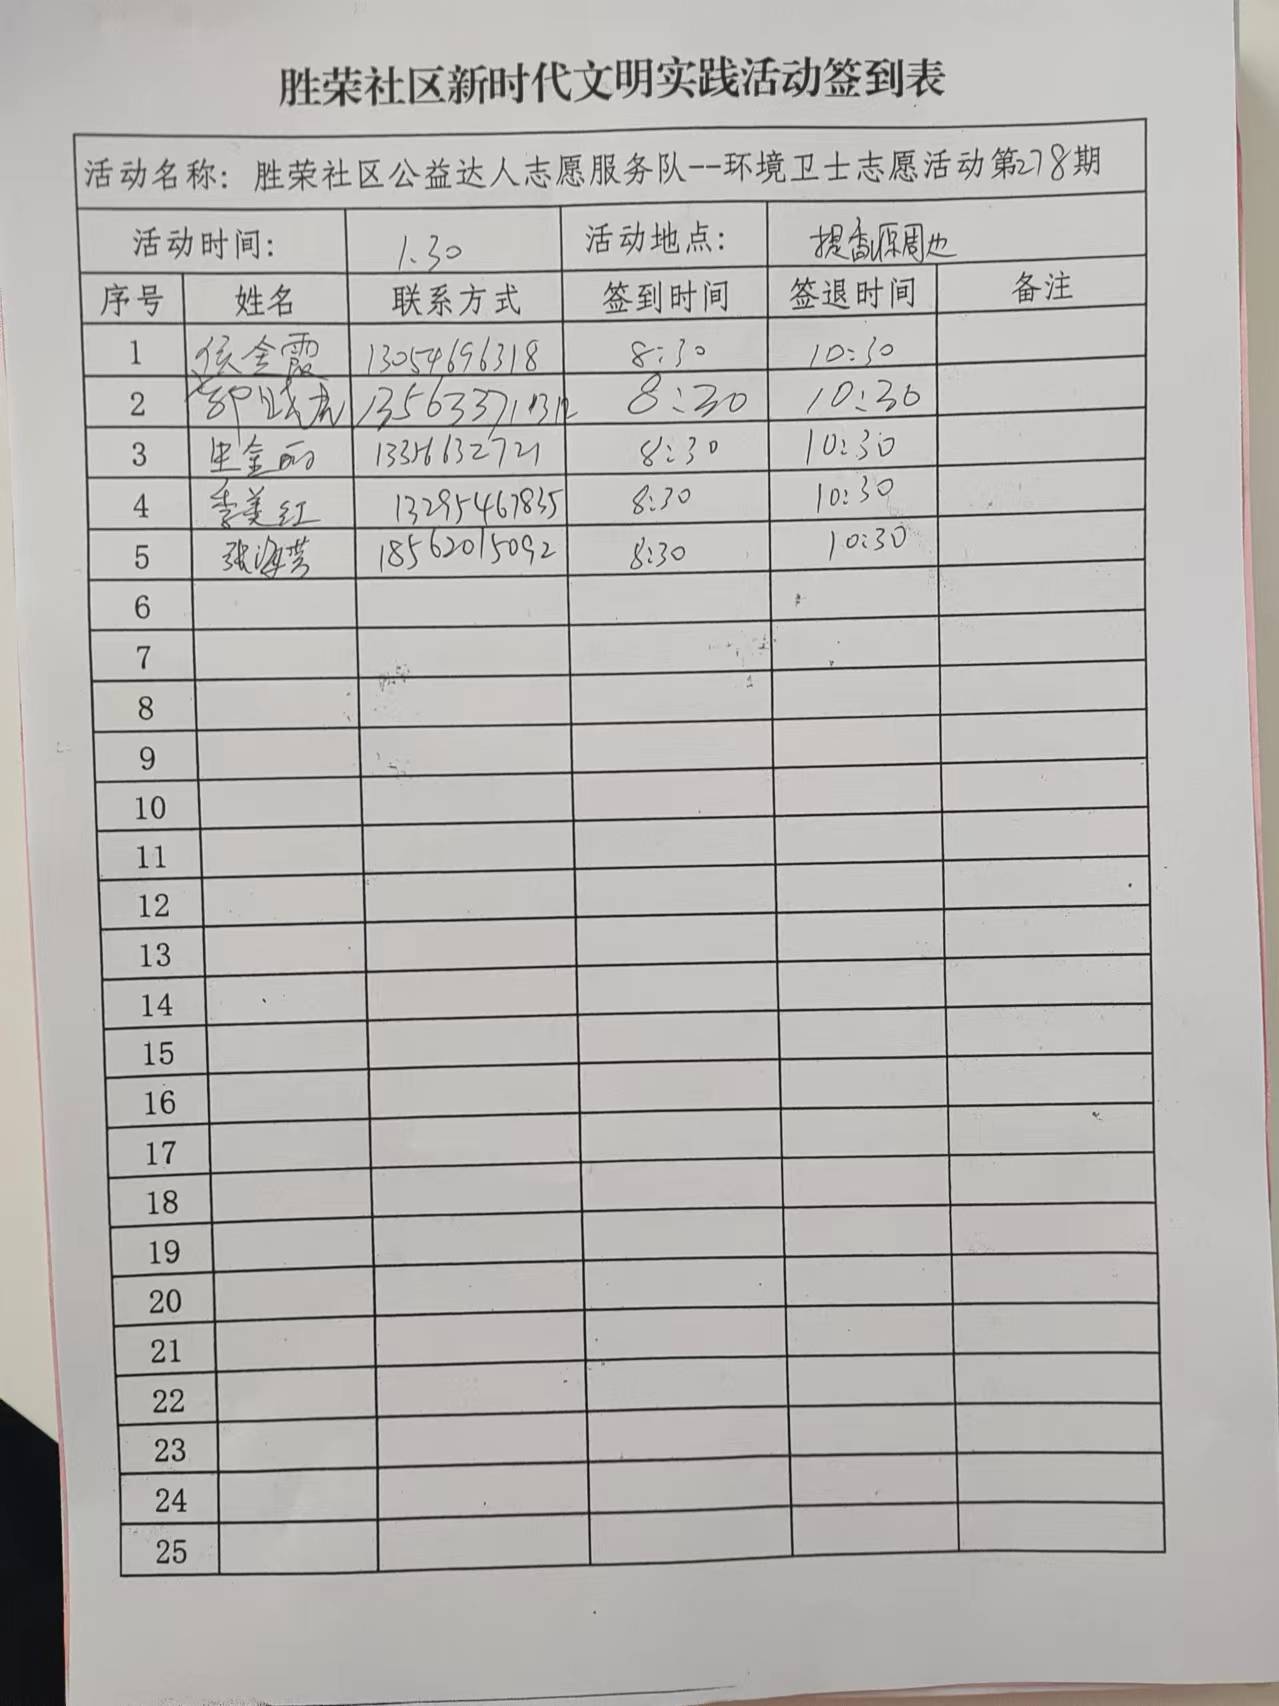 胜荣社区新时代文明实践活动签到表
活动名称：胜荣社区公益达人志愿服务队--环境卫士志愿活动第278期
活动时间： 1.30 活动地点： 提香源周边
序号 姓名 联系方式 签到时间 签退时间 备注
1 侯金霞 13054696318 8:30 10:30
2 8:30 10:30
3 8:30 10:30
4 李美红 13295467835 8:30 10:30
5 张海芳 18562015092 8:30 10:30
6
7
8
9
10
11
12
13
14
15
16
17
18
19
20
21
22
23
24
25